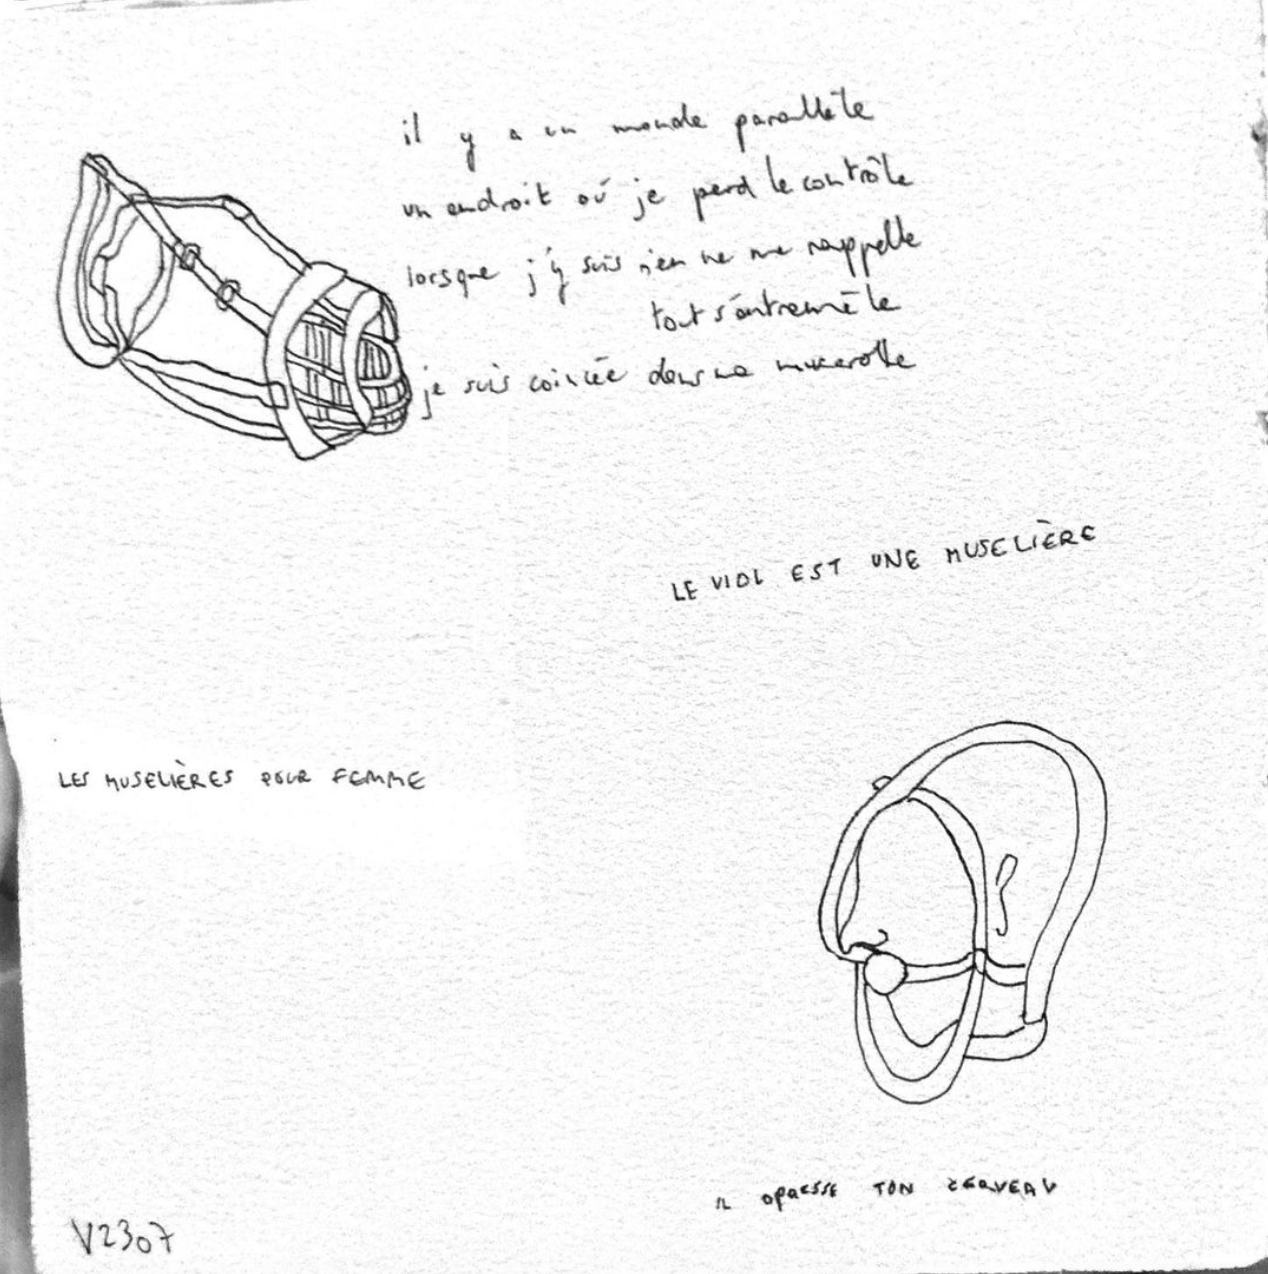 il y a un monde parallèle
un endroit où je perd le contrôle
lorsque j'y suis rien ne me rappelle
tout s'entremêle
je suis coincée dans ma muserolle
LE VIOL EST UNE MUSELIÈRE
LES MUSELIÈRES POUR FEMME
IL OPRESSE TON CERVEAU
V2307